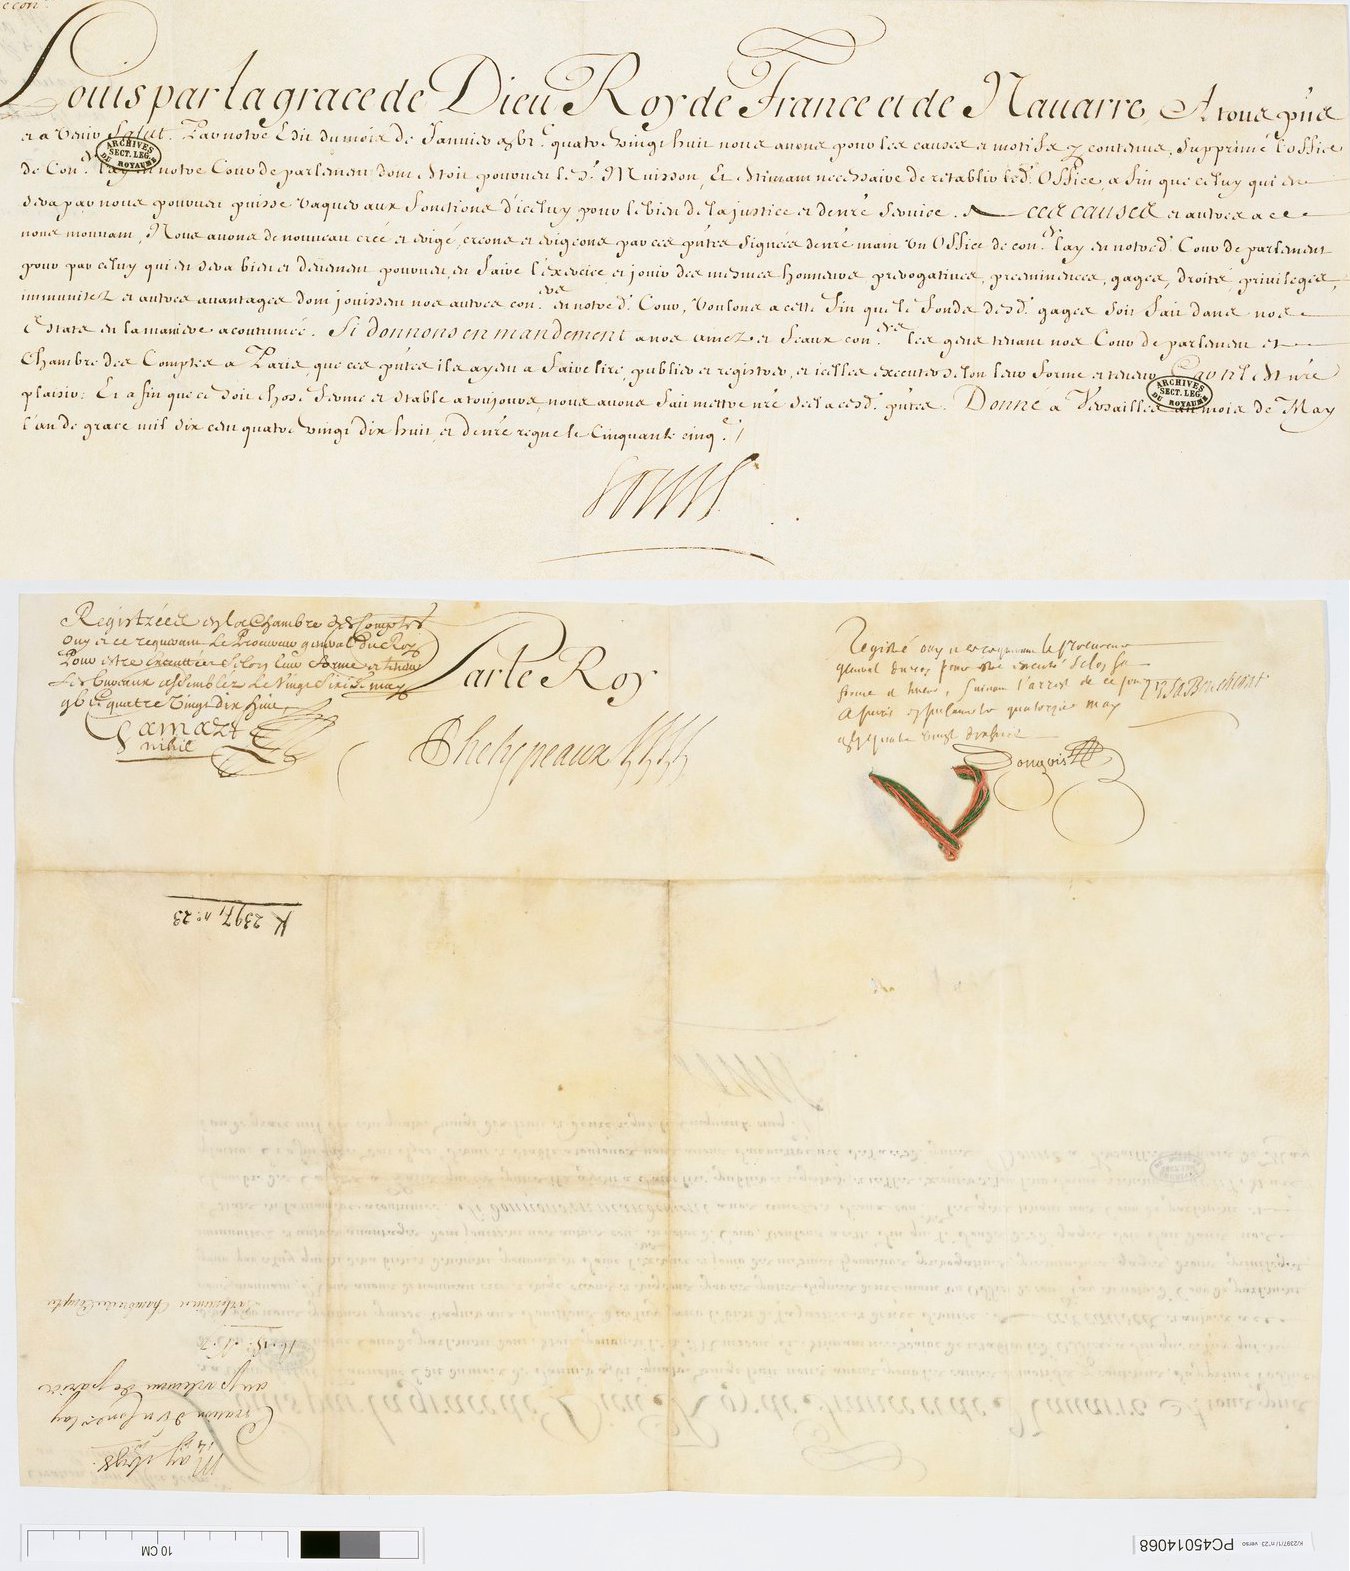 Louis par la grace de Dieu Roy de France et de Navarre, A tous pñs
et a venir Salut. Par notre Edit du mois de Janvier gbj.c quatre vingt huit nous avons pour les causes et motifs y contenus, Supprimé l'office
de Con.er lay en notre Cour de parlement dont étoit pourvu le S.r Muisson, Et étimant necessaire de rétablir led. Office, a fin que celuy qui en
sera par nous pourvu puisse vaquer aux fonctions d'iceluy, pour le bien de la justice et de nr̃e Service. A ces causes et autres a ce
nous mouvant, Nous avons de nouveau creé et erigé, creons et erigeons par ces pñtes signées de nr̃e main un Office de con.er lay en notred. Cour de parlement
pour par celuy qui en sera bien et deuement pourvu en faire l'exercice, et jouir des mesmes honneurs prerogatives, preeminences, gages, droits, privileges,
immunitez et autres avantages dont jouissent nos autres con.ers en notred. Cour, Voulons a cette fin que le fonds desd. gages soit fait dans nos
Etats en la maniere acoutumée. Si donnons en mandement a nos amez et feaux con.ers les gens tenant nos Cour de parlement et
Chambre des Comptes a Paris, que ces pñtes ils ayent a faire lire, publier et registrer, et icelles executer selon leur forme et teneur Car tel est nr̃e
plaisir; Et a fin que ce soit chose ferme et stable a toujours, nous avons fait mettre nr̃e Scel a cesd. pñtes. Donné a Versailles au mois de May
l'an de grace mil six cent quatre vingt dix huit, et de nr̃e regne le Cinquante cinq.e /
ARCHIVES
SECT. LEG.
DU ROYAUME
ARCHIVES
SECT. LEG.
DU ROYAUME
Louis
Registrées en la Chambre des Comptes
Ouy et ce requerant Le Procureur general Du Roy
Pour estre Executtées Selon leur forme et teneur
Les bureaux assemblez Le Vingt Sixe de may
gbj.c quatre Vingt Dix huit,
nihil
Par le Roy
Phelypeaux
Registré ouy et ce requerant le procureur
general du roy pour estre executé selon sa
forme et teneur, suivant l'arrest de ce jour
A paris en parlement le quatorzie may
gbj.c quatre vingt dix huit
Dongois
K 2397, n.° 23
Parlement Chambre des Comptes
au parlement de paris
Creation d'un Cons.er lay
May 1698.
10 CM
PC45014068
K/2397/1/n°23 verso